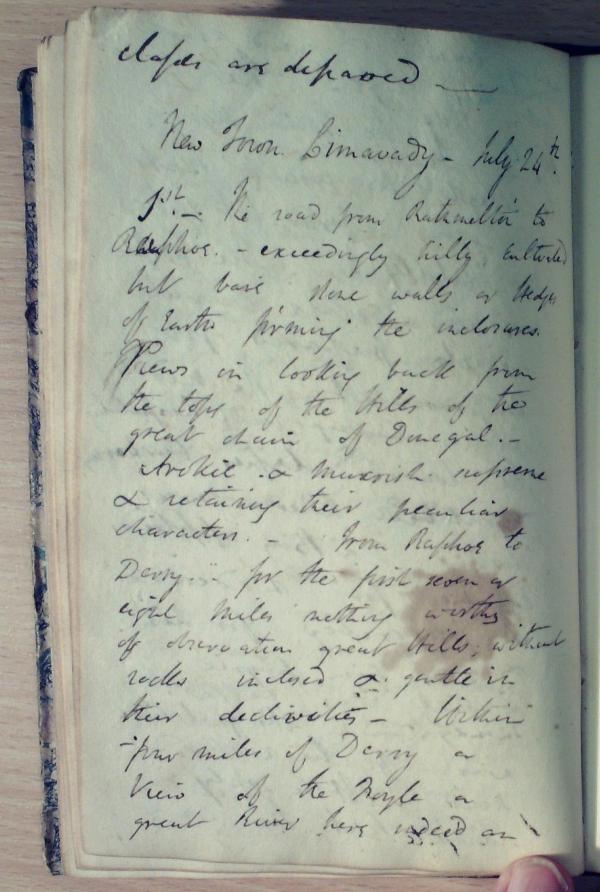 classes are depraved —
New Town Limavady - July 24th.
1st. - The road from Rathmelton to
Raphoe. - exceedingly hilly. Cultivated
but bare stone walls or Hedges
of Earth forming the inclosures.
Views in looking back from
the tops of the Hills of the
great chain of Donegal. -
Arokil. & Muckish supreme
& retaining their peculiar
characters. - From Raphoe to
Derry. - for the first seven or
eight miles nothing worthy
of observation great Hills, without
rocks inclosed & gentle in
their declivities - Within
four miles of Derry a
View of the Foyle a
great River here indeed an